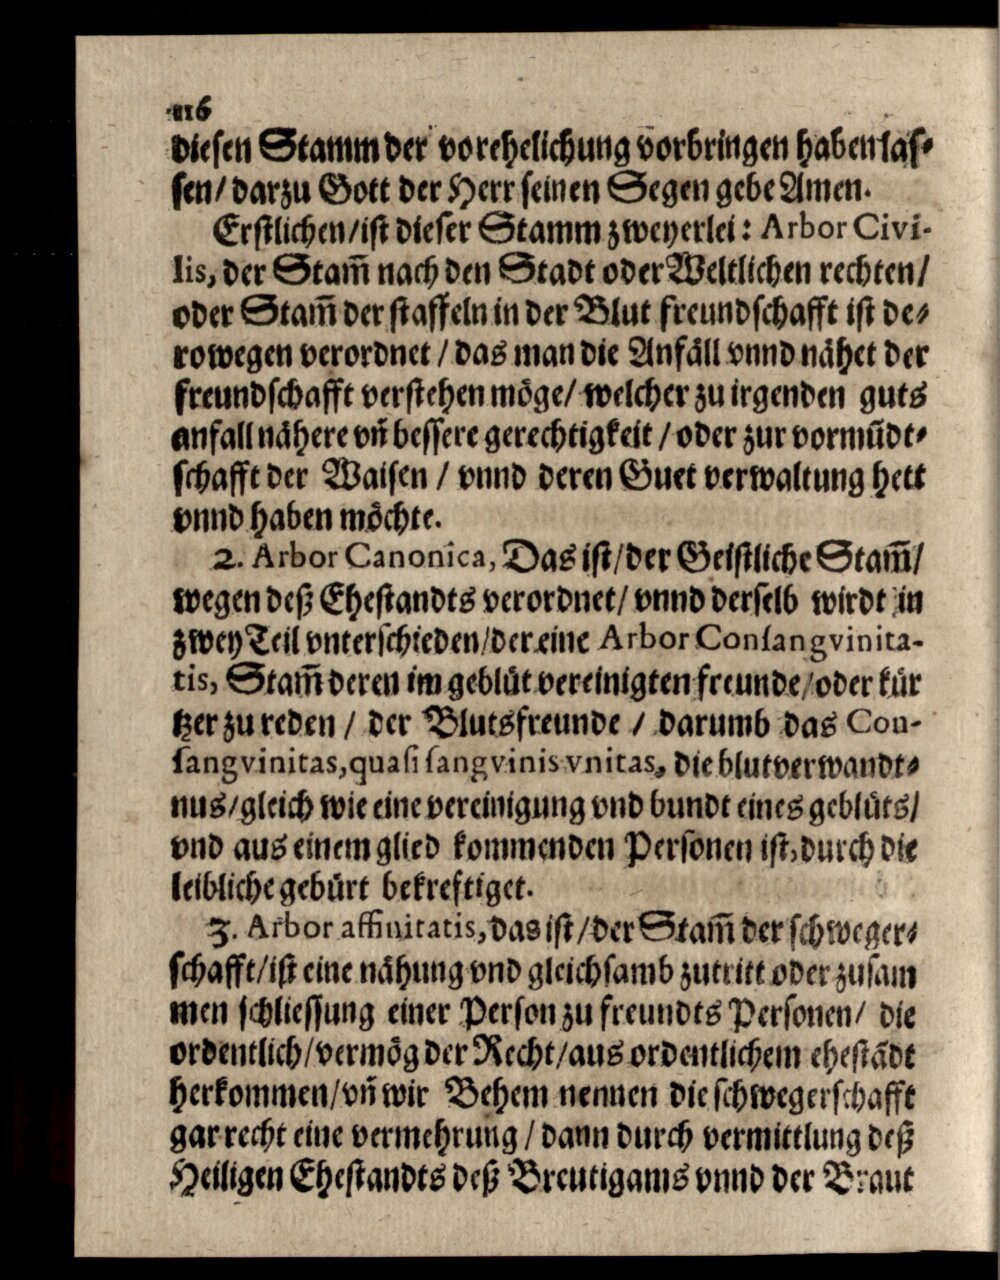 116
diesen Stamm der vorehelichung vorbringen haben las⸗
sen/ darzu Gott der Herr seinen Segen gebe Amen.
Erstlichen/ist dieser Stamm zweyerlei: Arbor Civi-
lis, der Stam̄ nach den Stadt oder Weltlichen rechten/
oder Stam̄ der staffeln in der Blut freundschafft ist de⸗
rowegen verordnet / das man die Anfäll vnnd nähet der
freundschafft verstehen möge/ welcher zu irgenden guts
anfall nähere vn̄ bessere gerechtigkeit / oder zur vormũdt⸗
schafft der Waisen / vnnd deren Guet verwaltung hett
vnnd haben möchte.
2. Arbor Canonica, Das ist/der Geistliche Stam̄/
wegen deß Ehestandts verordnet/ vnnd derselb wirdt in
zwey Teil vnterschieden/der eine Arbor Consangvinita-
tis, Stam̄ deren im geblüt vereinigten freunde/oder kür
tzer zu reden / der Blutsfreunde / darumb das Con-
sangvinitas,quasi sangvinis vnitas, die blutverwandt⸗
nus/gleich wie eine vereinigung vnd bundt eines geblüts/
vnd aus einem glied kommenden Personen ist,durch die
leibliche gebürt bekreftiget.
3. Arbor affinitatis,das ist/der Stam̄ der schweger⸗
schafft/ist eine nähung vnd gleichsamb zutritt oder zusam
men schliessung einer Person zu freundts Personen/ die
ordentlich/vermög der Recht/aus ordentlichem ehestãdt
herkommen/vn̄ wir Behem nennen die schwegerschafft
gar recht eine vermehrung / dann durch vermittlung deß
Heiligen Ehestandts deß Breutigams vnnd der Braut